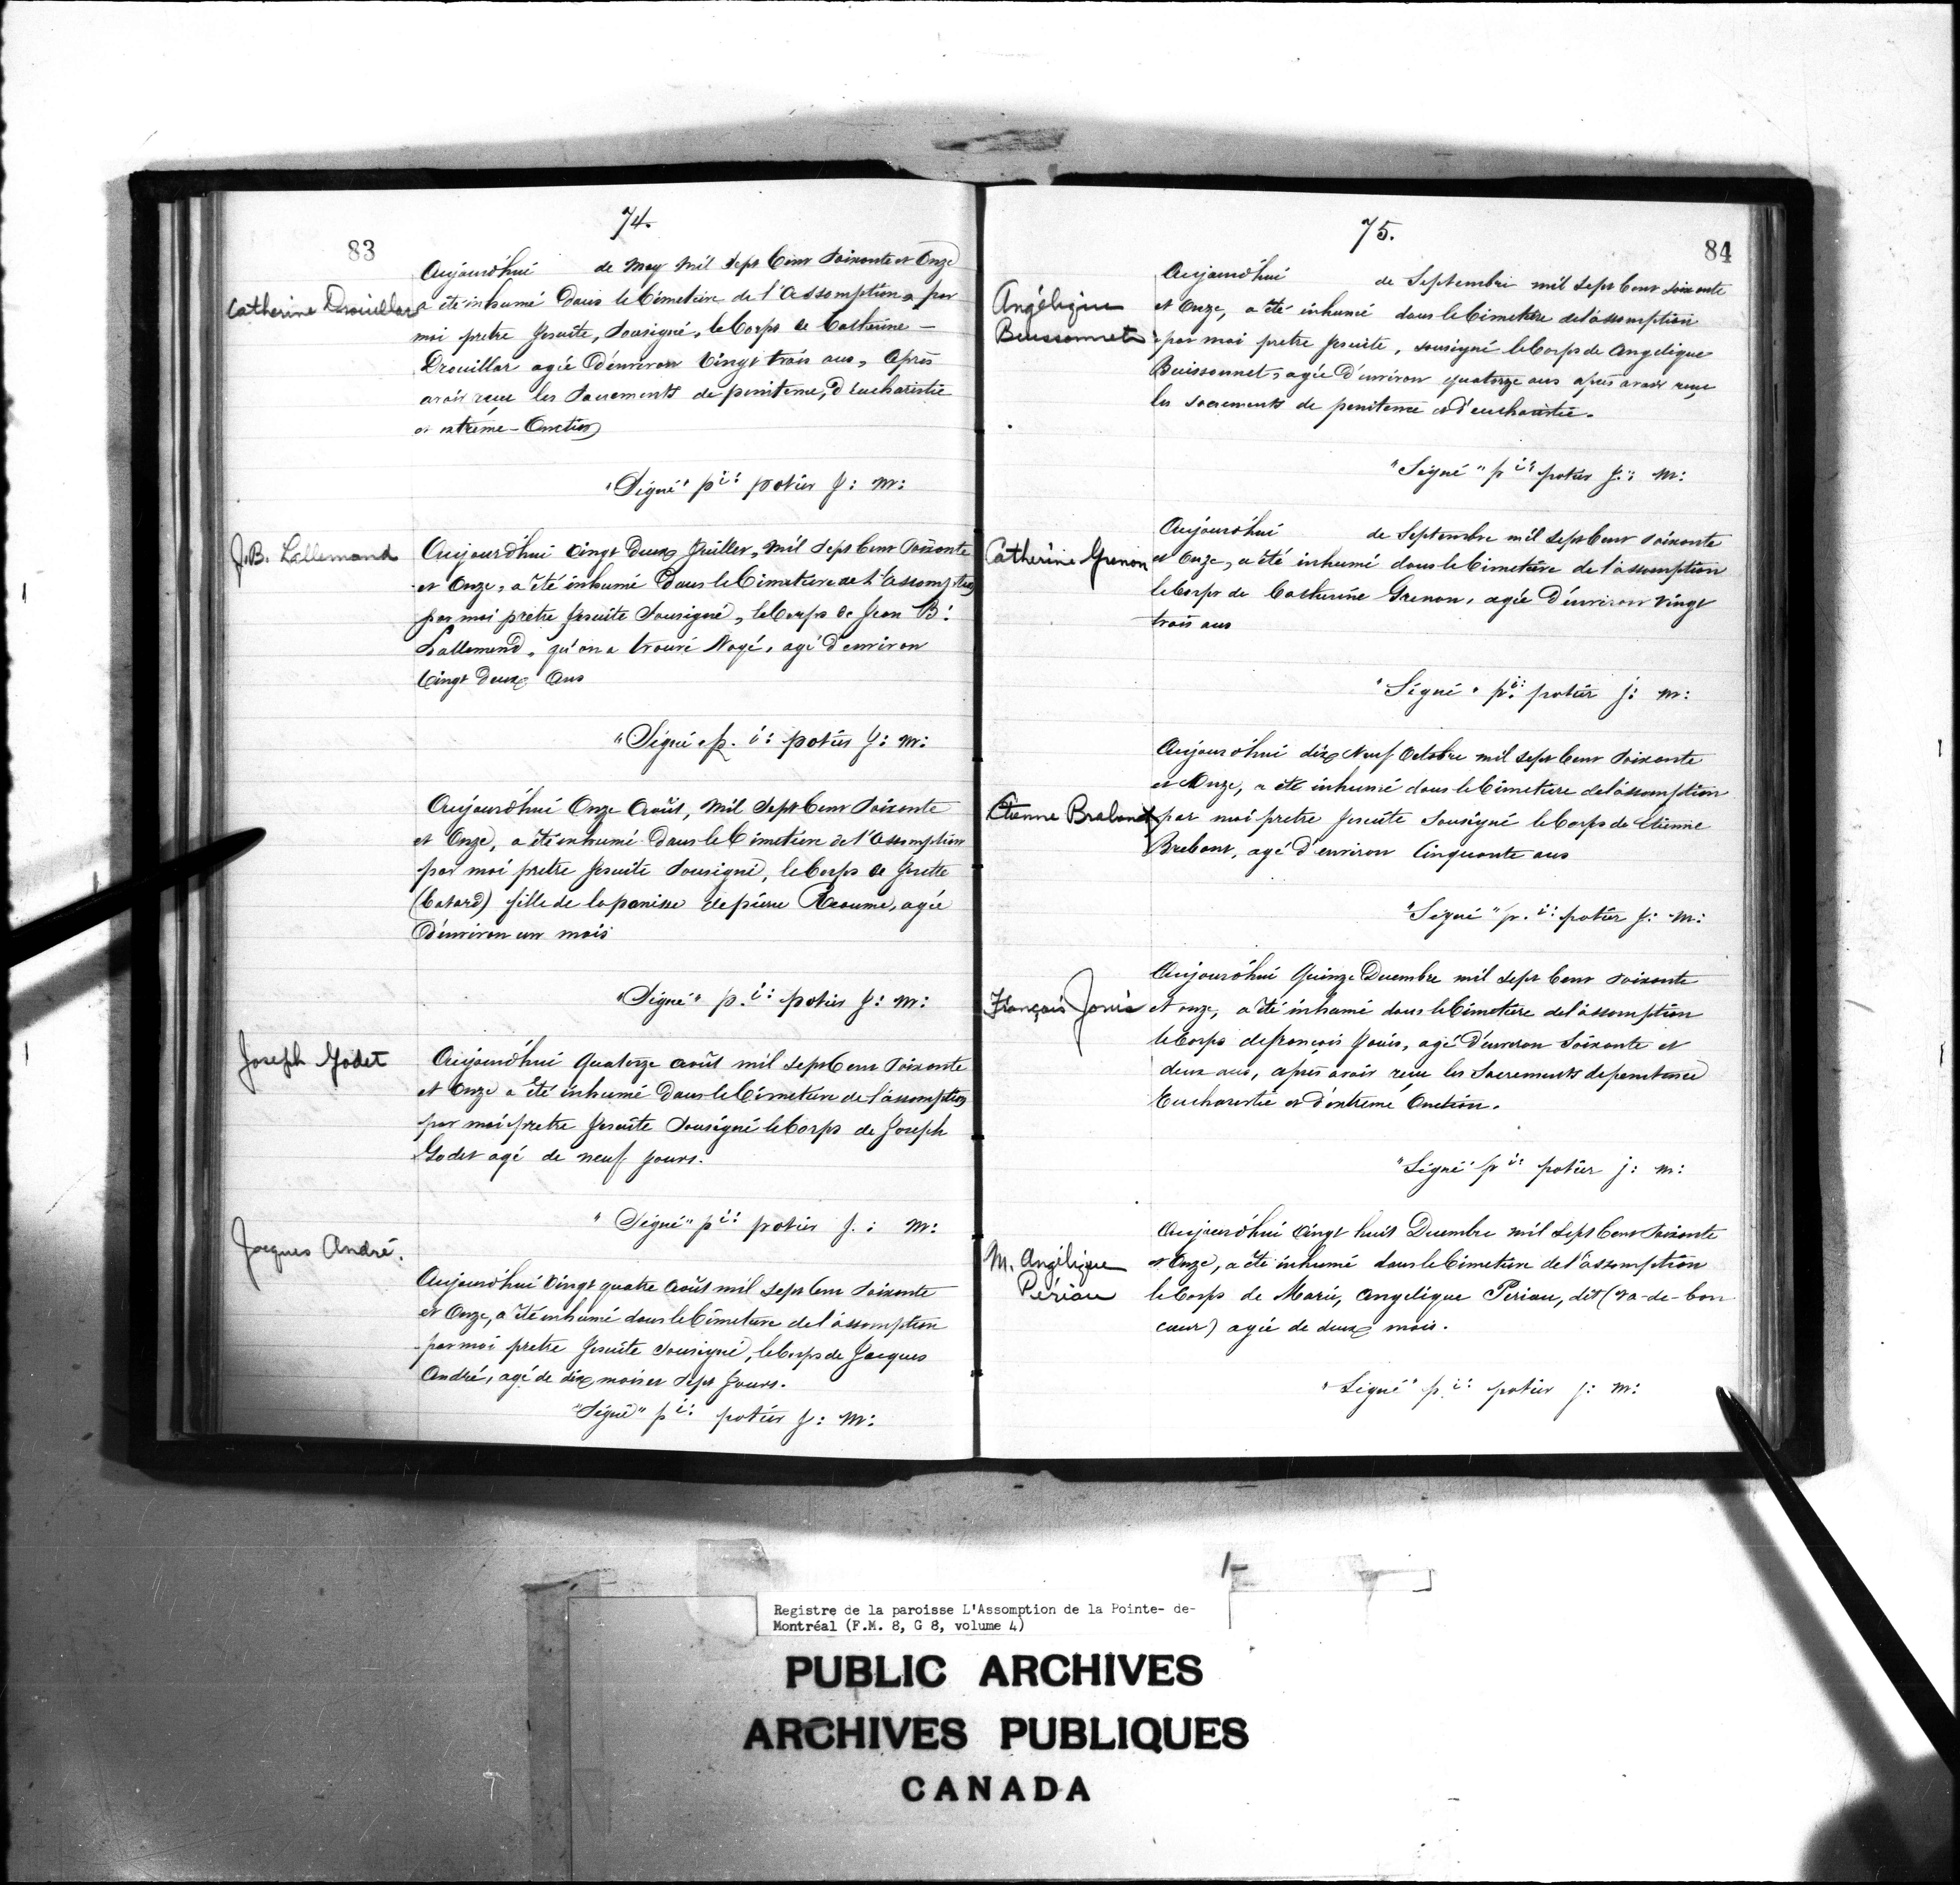 74.
83
Catherine Drouillar
Aujourd'hui de May mil sept Cent soixante et Onze
a été inhumé Dans le Cimetière de l'Assomption, par
moi pretre Jesuite, Sousigné, le Corps de Catherine -
Drouillar agée D'environ Vingt trois ans, Après
avoir reçu les Sacrements de penitence, D'eucharistie
et extrême-Onction
"Signé" pi: potier j: m:
J.B. Lallemand
Aujourd'hui Vingt Deux Juillet, Mil Sept Cent Soixante
et Onze, a été inhumé Dans le Cimetière de l'assomption
par moi prêtre Jesuite Sousigné, le Corps de Jean B:
Lallemand, qu'on a trouvé Noyé, agé D'environ
Vingt Deux Ans
"Signé" p. i: potier j: m:
Aujourd'hui Onze Août, Mil Sept Cent Soixante
et Onze, a été inhumé Dans le Cimetière de l'Assomption
par moi pretre Jesuite Sousigné, le Corps de Josette
(batard) fille de la panisse de pierre Reaume, agée
D'environ un mois
"Signé" p. i: potier j: m:
Joseph Godet
Aujourd'hui Quatorze août mil sept Cent Soixante
et Onze a été inhumé Dans le Cimetière de l'assomption
par moi pretre Jesuite Sousigné le Corps de Joseph
Godet agé de neuf jours.
"Signé" pi: potier j: m:
Jacques André.
Aujourd'hui Vingt quatre Août mil sept Cent Soixante
et Onze, a été inhumé dans le Cimetière de l'assomption
par moi pretre Jesuite Sousigné, le Corps de Jacques
André, agé de dix mois et Sept Jours.
"Signé" pi: potier j: m:
75.
84
Angélique
Buissonnet
Aujourd'hui de Septembre mil sept Cent soixante
et Onze, a été inhumé dans le Cimetière de l'assomption
par moi pretre Jesuite, sousigné le Corps de Angelique
Buissonnet, agée D'environ quatorze ans après avoir reçu
les sacrements de penitence et d'eucharistie.
"Signé" pi: potier j: m:
Catherine Grenon
Aujourd'hui de Septembre mil sept Cent soixante
et Onze, a été inhumé dans le Cimetière de l'assomption
le Corps de Catherine Grenon, agée D'environ Vingt
trois ans
"Signé" pi: potier j: m:
Etienne Brabant
Aujourd'hui dix Neuf Octobre mil sept Cent Soixante
et Onze, a été inhumé dans le Cimetière de l'assomption
par moi pretre Jesuite Sousigné le Corps de Etienne
Brebant, agé D'environ Cinquante ans
"Signé" p. i: potier j: m:
François Janis
Aujourd'hui Quinze Decembre mil sept Cent Soixante
et onze, a été inhumé dans le Cimetière de l'assomption
le Corps de françois Janis, agé D'environ Soixante et
deux ans, après avoir reçu les Sacrements de penitence
Eucharistie et d'extreme Onction.
"Signé" pi: potier j: m:
M. Angélique
Périau
Aujourd'hui Vingt huit Decembre mil Sept Cent Soixante
et Onze, a été inhumé dans le Cimetière de l'assomption
le Corps de Marie, Angelique Periau, dit (va-de-bon
cœur) agée de deux mois.
"Signé" p. i: potier j: m:
Registre de la paroisse L'Assomption de la Pointe- de-
Montréal (F.M. 8, G 8, volume 4)
PUBLIC ARCHIVES
ARCHIVES PUBLIQUES
CANADA